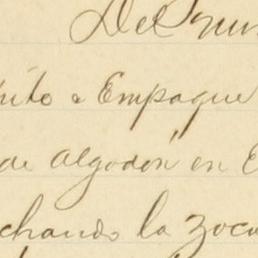 Del
nito e Empaque
de algodón en E
chando la zoca